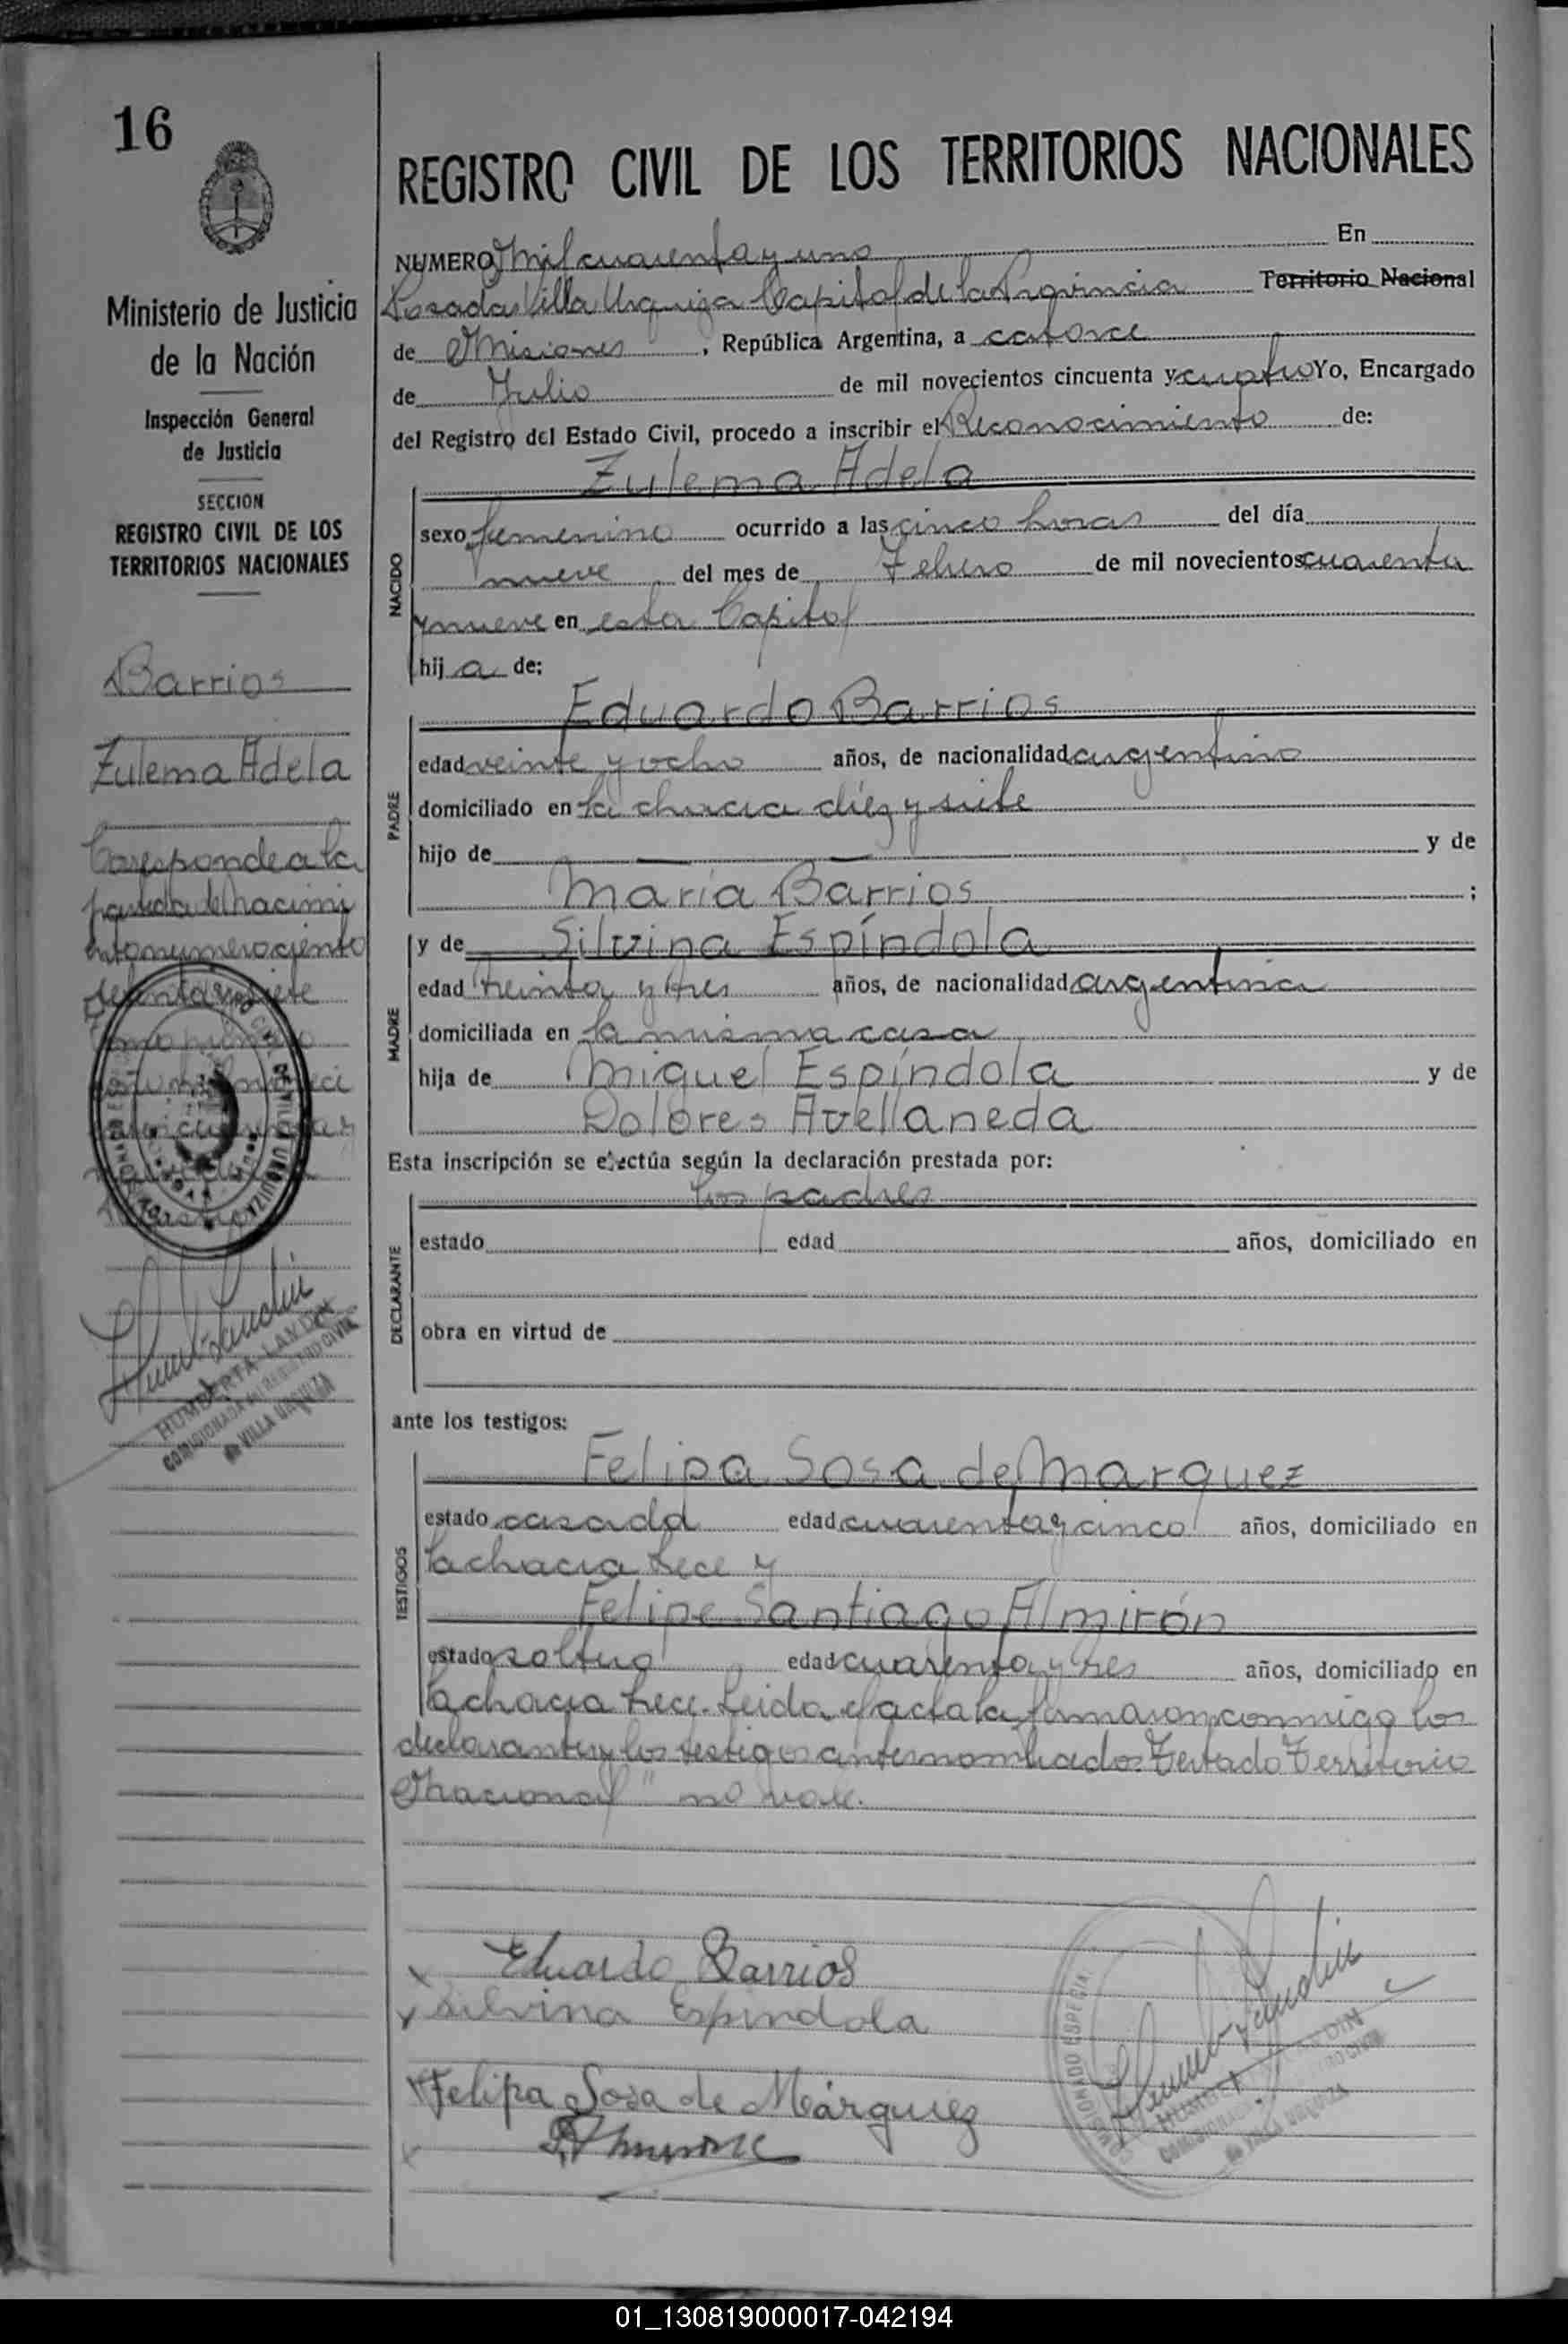 16
Ministerio de Justicia
de la Nación
Inspección General
de Justicia
SECCION
REGISTRO CIVIL DE LOS
TERRITORIOS NACIONALES
Barrios
Zulema Adela
Corresponde a la
partida de nacimi
ento numero ciento
setenta y siete
HUMBERTA LANDIN
COMISIONADA del REGISTRO CIVIL
de VILLA URQUIZA
REGISTRO CIVIL DE LOS TERRITORIOS NACIONALES
NUMERO Mil cuarenta y uno En
Posadas Villa Urquiza Capital de la Provincia Territorio Nacional
de Misiones, República Argentina, a catorce
de Julio de mil novecientos cincuenta y cuatro Yo, Encargado
del Registro del Estado Civil, procedo a inscribir el Reconocimiento de:
Zulema Adela
NACIDO
sexo femenino ocurrido a las cinco horas del día
nueve del mes de Febrero de mil novecientos cuarenta
y nueve en esta Capital
hija de:
Eduardo Barrios
PADRE
edad veinte y ocho años, de nacionalidad argentino
domiciliado en la chacra diez y siete
hijo de — — y de
María Barrios ;
y de Silvina Espíndola
MADRE
edad treinta y tres años, de nacionalidad argentina
domiciliada en la misma casa
hija de Miguel Espíndola y de
Dolores Avellaneda
Esta inscripción se efectúa según la declaración prestada por:
los padres
DECLARANTE
estado edad años, domiciliado en
obra en virtud de
ante los testigos:
Felipa Sosa de Marquez
TESTIGOS
estado casada edad cuarenta y cinco años, domiciliado en
la chacra trece y
Felipe Santiago Almirón
estado soltero edad cuarenta y tres años, domiciliado en
la chacra trece. Leida el acta la firmaron conmigo los
declarantes y los testigos antes nombrados. Testado Territorio
Nacional" no vale.
Eduardo Barrios
Silvina Espindola
Felipa Sosa de Márquez
01_130819000017-042194